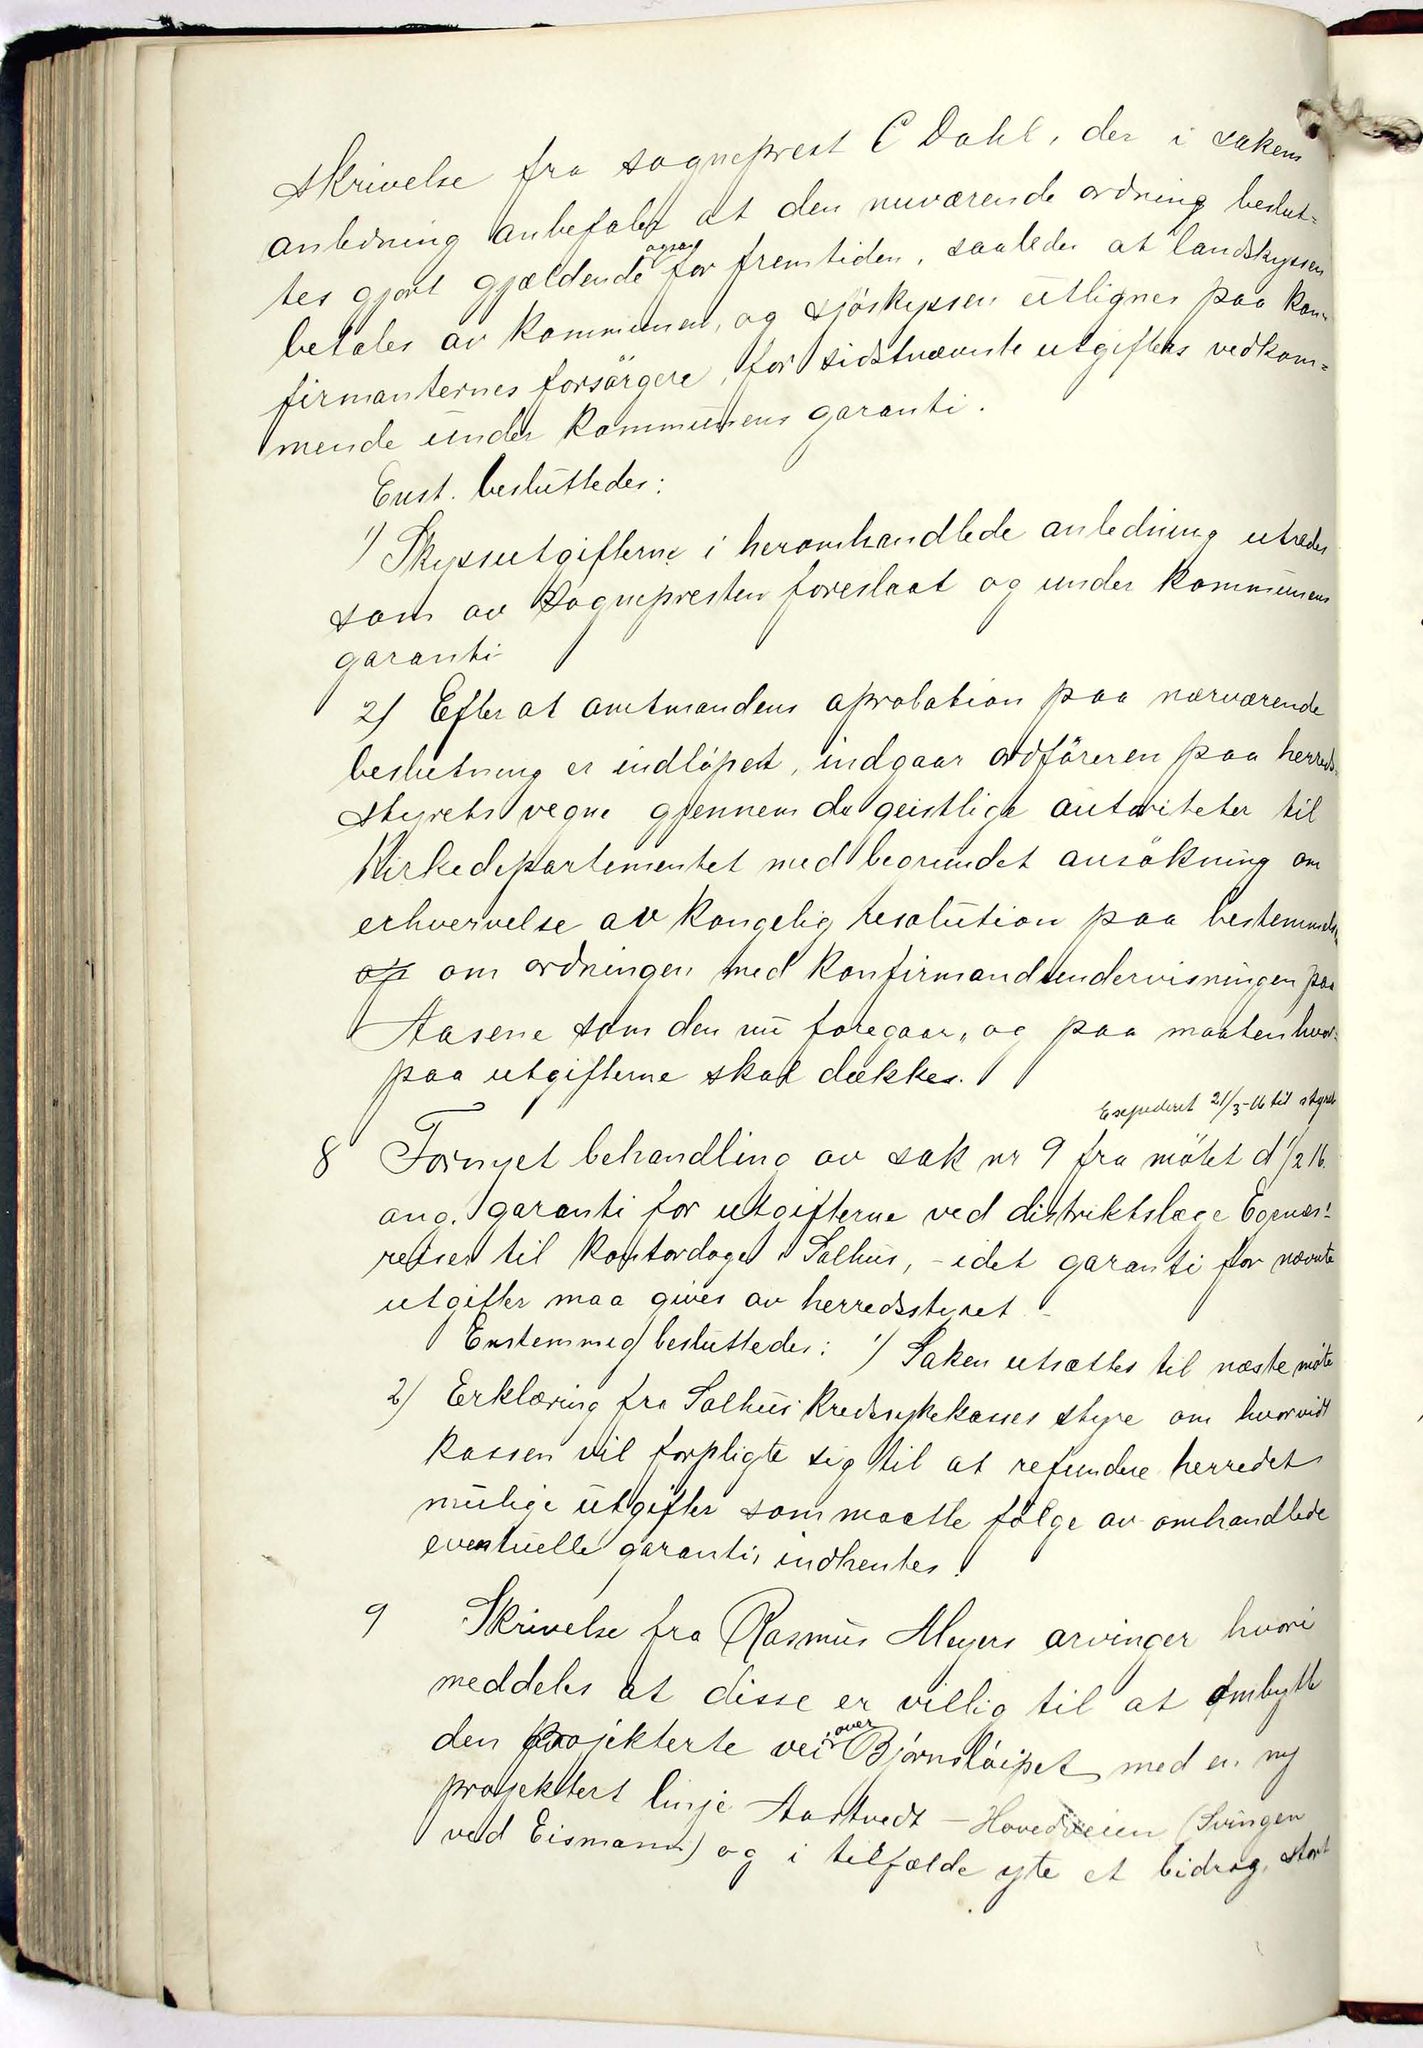 skrivelse fra sogneprest C Dahl, der i sakens
anledning anbefaler at den nuværende ordning beslut-
tes gjort gjældende ogsaa for fremtiden, saaledes at landskyssen
betales av kommunen, og sjøskyssen utlignes paa kon-
firmanternes forsørgere, for sidstnævnte utgifters vedkom-
mende under kommunens garanti.
Enst. besluttedes:
1) Skyssutgifterne i heromhandlede anledning utredes
som av sognepresten foreslaat og under kommunens
garanti
2) Efter at amtmandens aprobation paa nærværende
beslutning er indløpet, indgaar ordføreren paa herreds-
styrets vegne gjennem de geistlige autoriteter til
Kirkedepartementet med begrundet ansøkning om
erhvervelse av kongelig resolution paa bestemmelse
op om ordningen med konfirmandundervisningen paa
Aasene som den nu foregaar, og paa maaten hvor-
paa utgifterne skal dækkes.
Expederet 21/3-16 til styret
8 Fornyet behandling av sak nr 9 fra møtet d 1/2 16.
ang. garanti for utgifterne ved distriktslæge Egenæs'
reiser til kontordage i Salhus, - idet garanti for nævnte
utgifter maa gives av herredsstyret -
Enstemmig besluttedes: 1) Saken utsættes til næste møte
2) Erklæring fra Salhus kredssykekasses styre om hvorvidt
kassen vil forpligte sig til at refundere herredet
mulige utgifter som maatte følge av omhandlede
eventuelle garanti, indhentes.
9 Skrivelse fra Rasmus Meyers arvinger hvori
meddeles at disse er villig til at ombytte
den projekterte vei over Bjørnsløipet med en ny
projektert linje Aastvedt - Hovedveien (Svingen
ved Eismann) og i tilfælde yte et bidrag, stort